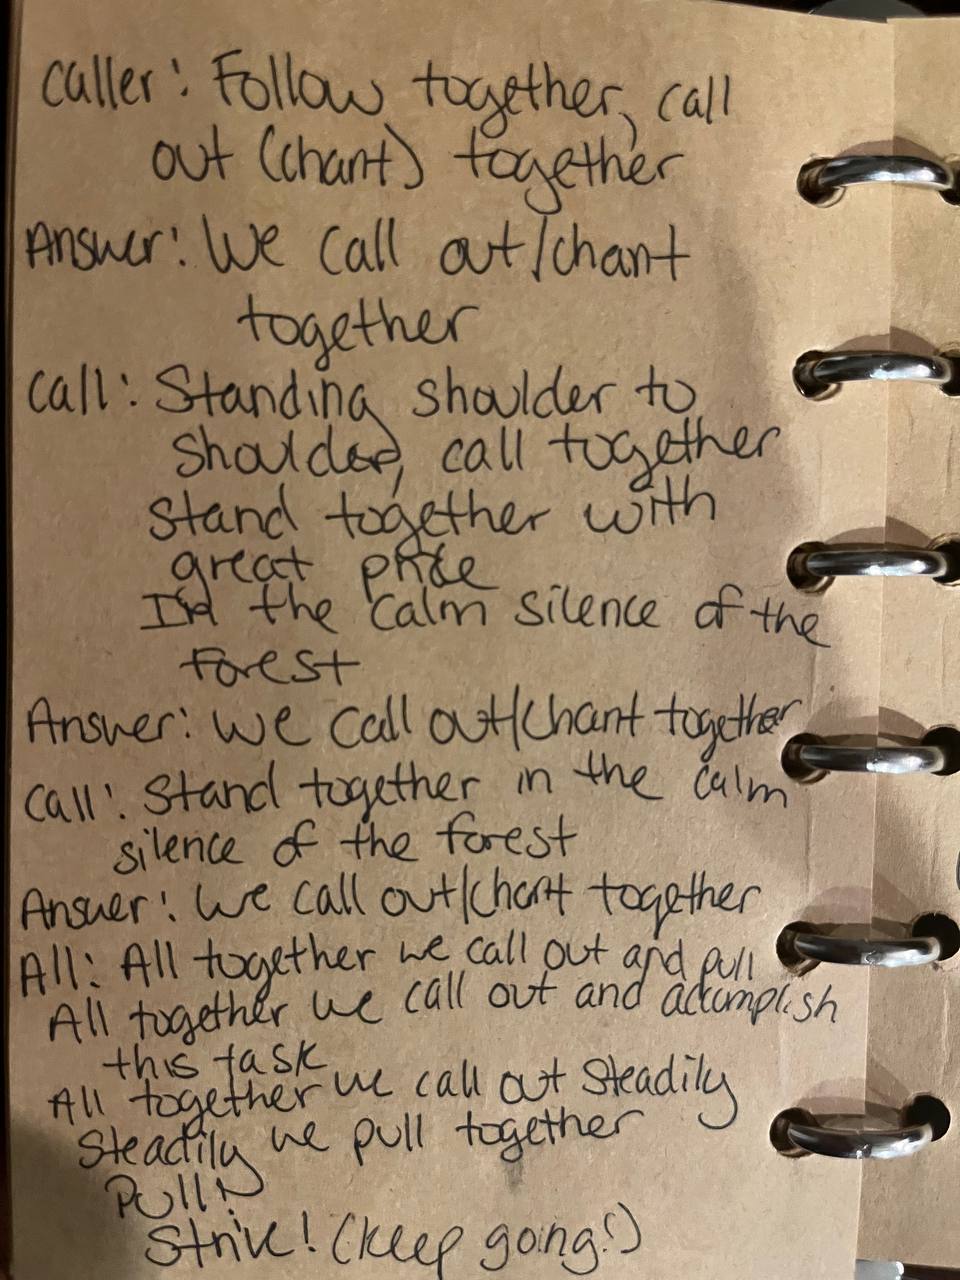 Caller: Follow together, call
out (chant) together
Answer: We call out/chant
together
Call: Standing shoulder to
shoulder, call together
Stand together with
great pride
In the calm silence of the
forest
Answer: We call out/chant together
Call: Stand together in the calm
silence of the forest
Answer: We call out/chant together
All: All together we call out and pull
All together we call out and accomplish
this task
All together we call out steadily
Steadily we pull together
Pull!
Strive! (keep going!)